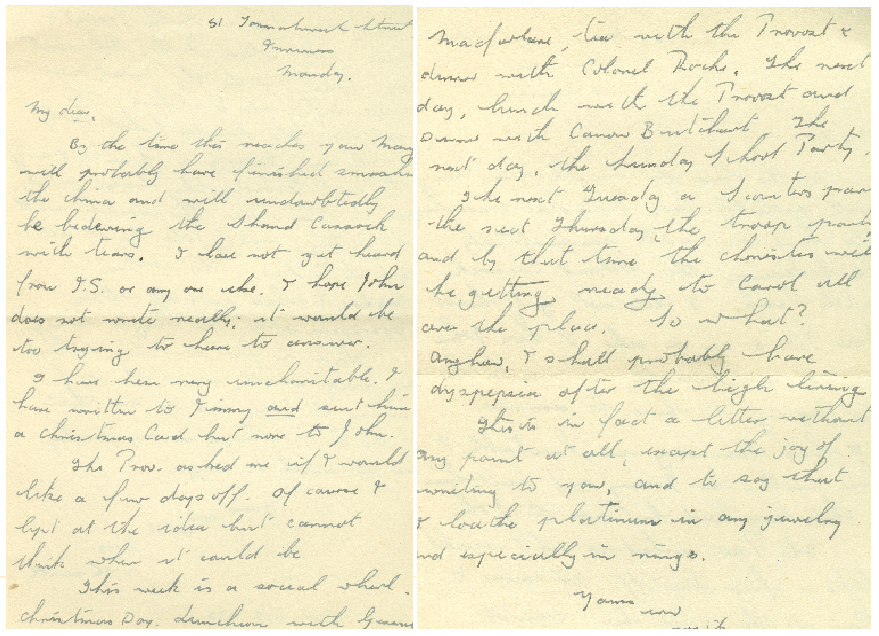 51 Tomnahurich Street
Inverness
Monday.
My dear,
By the time this reaches you Mary
will probably have finished smashing
the china and will undoubtedly
be bedewing the Shand Cassock
with tears. I have not yet heard
from I.S. or any one else. I hope John
does not write really; it would be
too trying to have to answer.
I have been very uncharitable. I
have written to Jimmy and sent him
a Christmas Card but none to John.
The Prov. asked me if I would
like a few days off. Of course I
lept at the idea but cannot
think when it could be
This week is a social whirl.
Christmas Day. Luncheon with
Macfarlane, tea with the Provost &
dinner with Colonel Roche. The next
day, lunch with the Provost and
with Canon Butchart. The
next day, the Sunday School Party.
The next Tuesday a Scouters
the next Thursday, the troop party
and by that time the choristers will
be getting ready to Carol all
over the place. So what?
Anyhow, I shall probably have
dyspepsia after the high living
This is in fact a letter without
any point at all, except the joy of
writing to you, and to say that
I loathe platinum in any jewelry
and especially in rings.
Yours